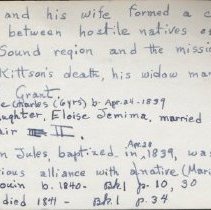 and his wife formed a c
between hostile natives of
Sound region and the missi
Kittson's death, his widow mar
Grant.
e Charles (6yrs) b. Apr. 24-1839
aughter, Eloise Jemima, married
air II.
n Jules, baptized in Apr 28, 1839, was
ious alliance with a native (Mari
ouin b. 1840- Bk1 p. 10, 30
died 1841 - Bk1 p. 34